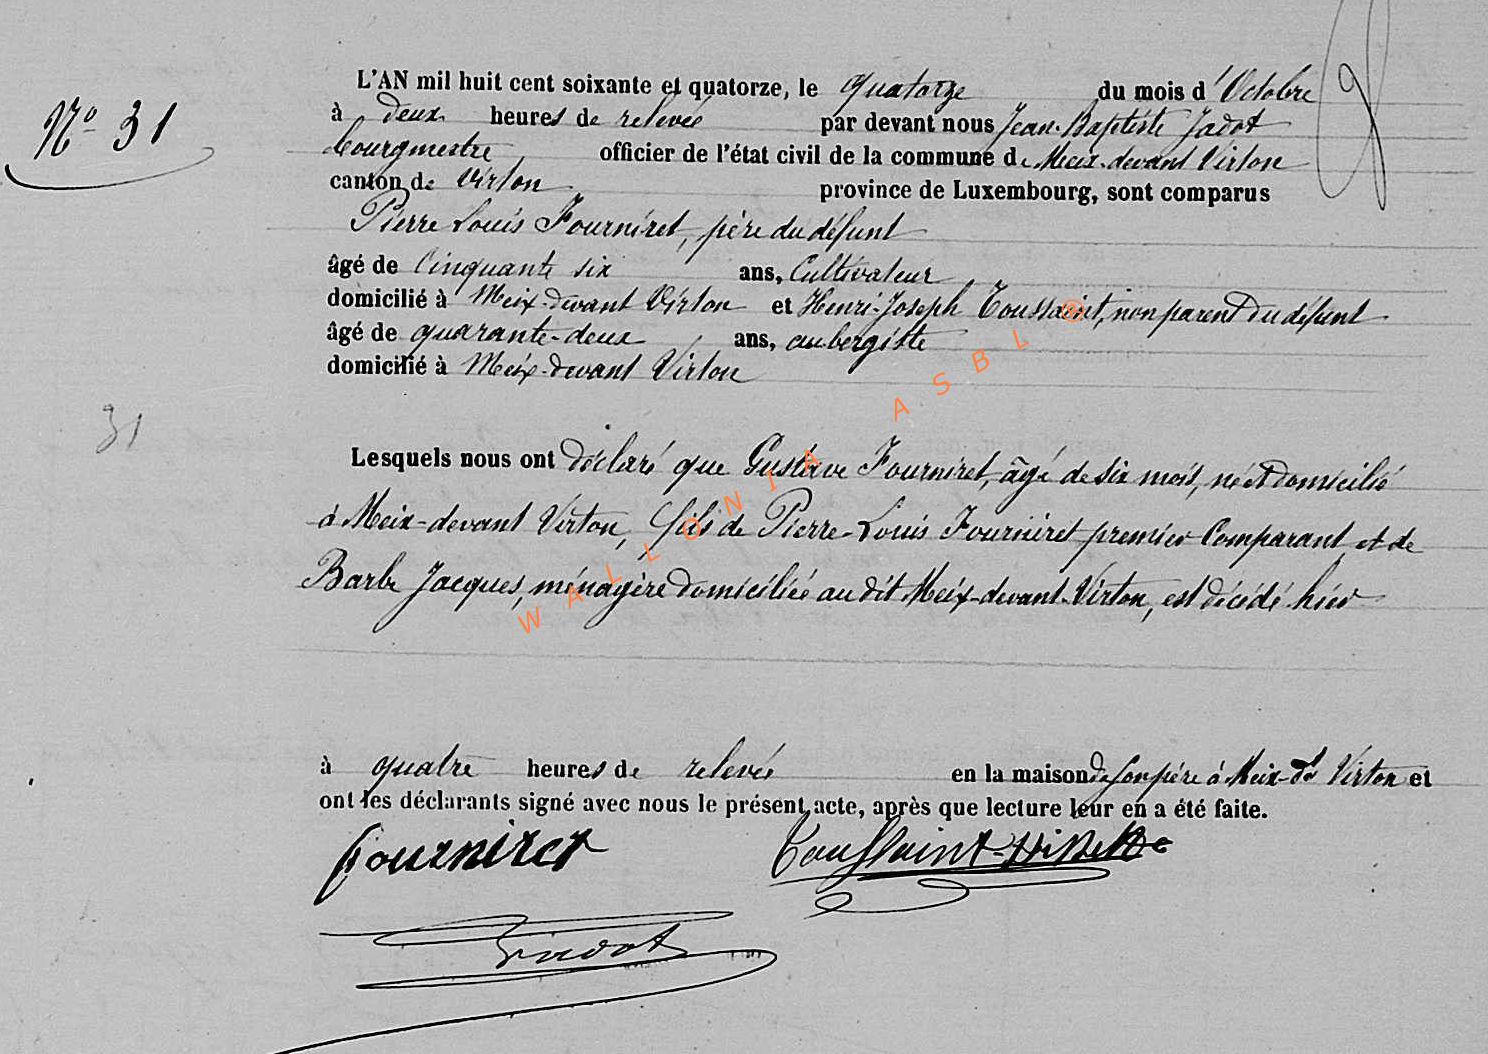 L'AN mil huit cent soixante et quatorze, le quatorze du mois d'Octobre
N° 31
à deux heures de relevée par devant nous Jean-Baptiste Jadot
bourgmestre, officier de l'état civil de la commune de Meix-devant Virton
canton de Virton province de Luxembourg, sont comparus
Pierre Louis Fourniret, père du défunt
âgé de Cinquante six ans, Cultivateur
domicilié à Meix-devant Virton et Henri-Joseph Toussaint, non parent du défunt
âgé de quarante-deux ans, aubergiste
domicilié à Meix-devant Virton
31
Lesquels nous ont déclaré que Gustave Fourniret, âgé de six mois, né et domicilié
à Meix-devant Virton, fils de Pierre-Louis Fourniret premier Comparant et de
Barbe Jacques, ménagère domiciliée au dit Meix-devant-Virton, est décédé hier
à quatre heures de relevée en la maison de son père à Meix-dt Virton et
ont les déclarants signé avec nous le présent acte, après que lecture leur en a été faite.
Fourniret Toussaint
Jadot
WALLONIA ASBL ®